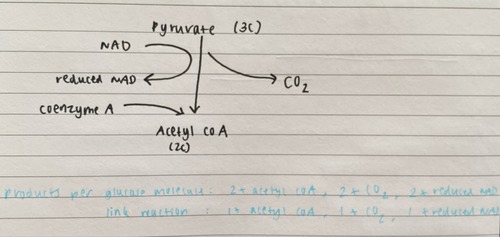 Pyruvate (3C)
NAD
reduced NAD
CO2
coenzyme A
Acetyl coA
(2C)
Products per glucose molecule: 2 + acetyl coA, 2 + CO2, 2 + reduced NAD
link reaction : 1 + acetyl coA, 1 + CO2, 1 + reduced NAD